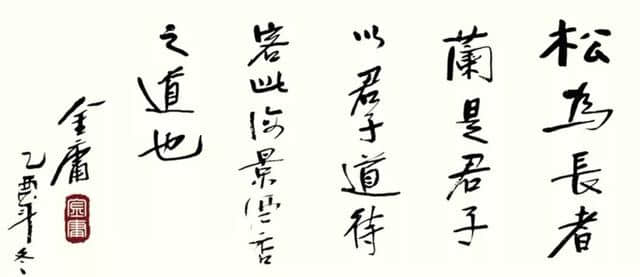 松為長者
蘭是君子
以君子道待
客此海景酒店
之道也
金庸
乙酉年冬
金庸